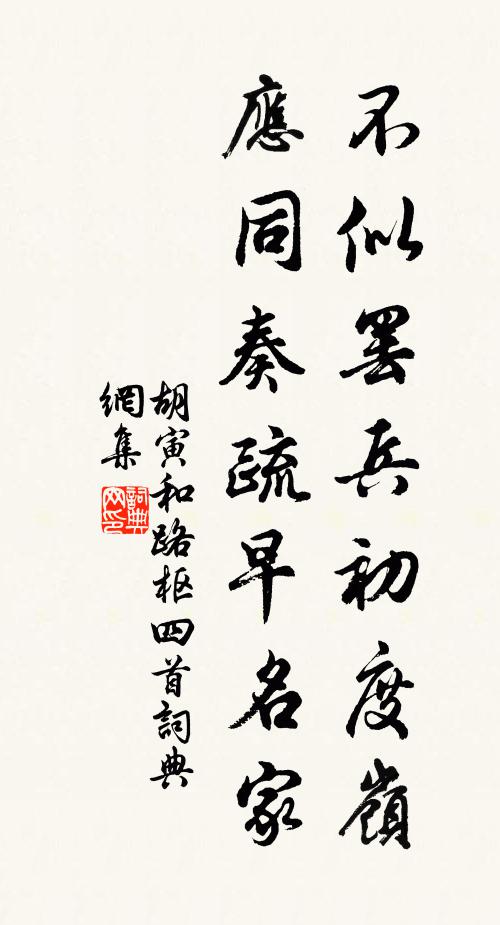 不似罷兵初度嶺
應同奏疏早名家
胡寅和路樞四首詞典
網集
詞典网印